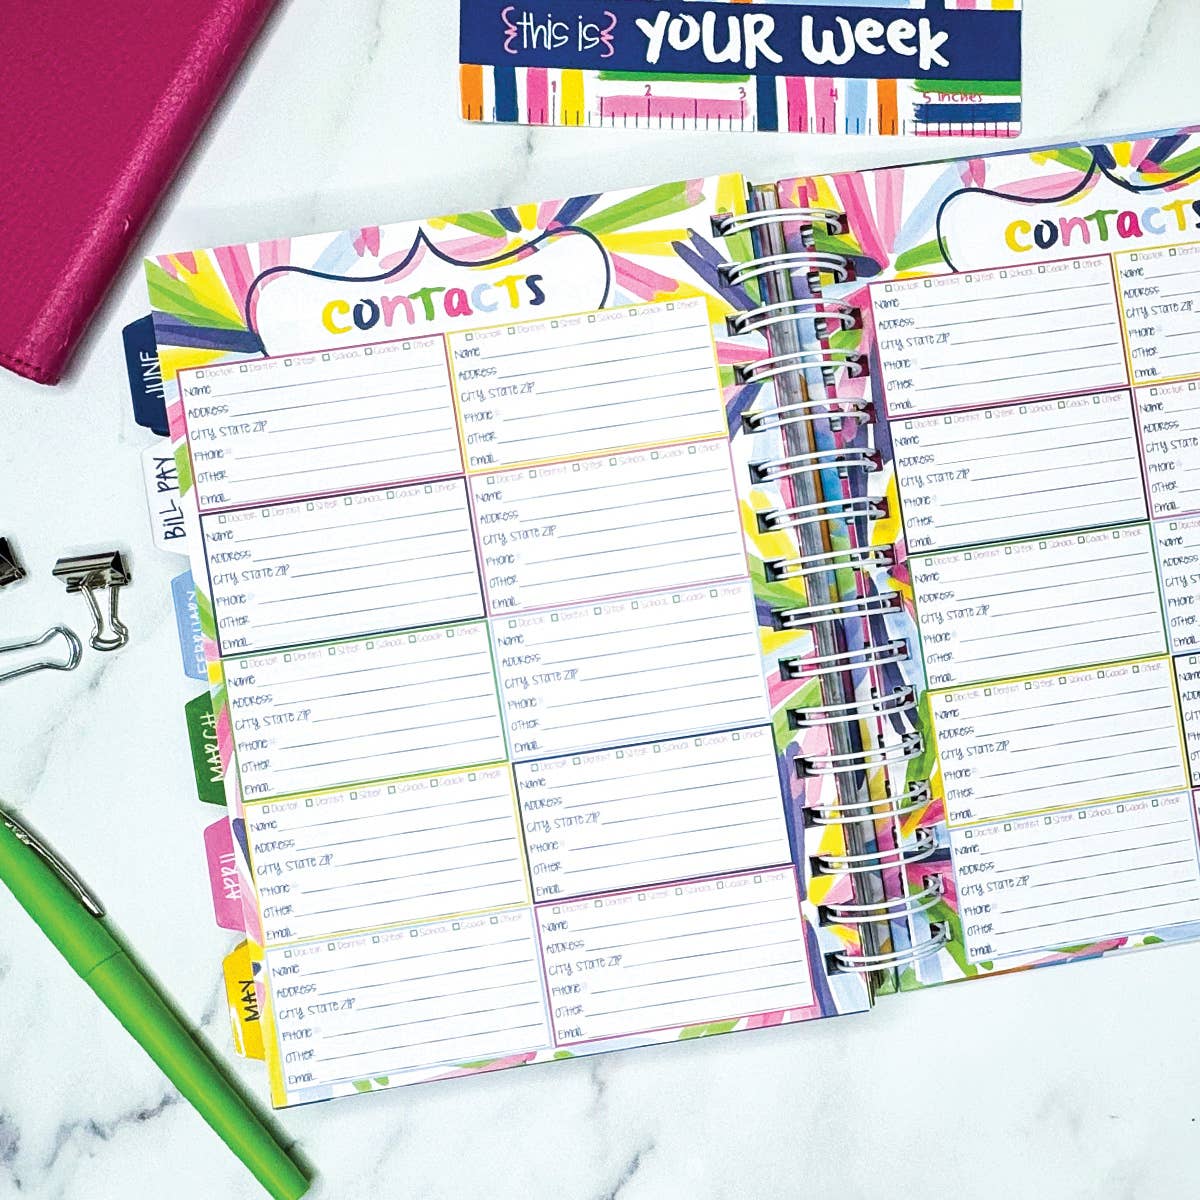 {this is} YOUR Week
1 2 3 4 5 inches
contacts
Doctor Dentist Sitter School Coach Other
Name
ADDRESS
CITY STATE ZIP
PHONE
OTHER
EMAIL
Doctor Dentist Sitter School Coach Other
Name
ADDRESS
CITY STATE ZIP
PHONE
OTHER
EMAIL
Doctor Dentist Sitter School Coach Other
Name
ADDRESS
CITY STATE ZIP
PHONE
OTHER
EMAIL
Doctor Dentist Sitter School Coach Other
Name
ADDRESS
CITY STATE ZIP
PHONE
OTHER
EMAIL
Doctor Dentist Sitter School Coach Other
Name
ADDRESS
CITY STATE ZIP
PHONE
OTHER
EMAIL
Doctor Dentist Sitter School Coach Other
Name
ADDRESS
CITY STATE ZIP
PHONE
OTHER
EMAIL
Doctor Dentist Sitter School Coach Other
Name
ADDRESS
CITY STATE ZIP
PHONE
OTHER
EMAIL
Doctor Dentist Sitter School Coach Other
Name
ADDRESS
CITY STATE ZIP
PHONE
OTHER
EMAIL
Doctor Dentist Sitter School Coach Other
Name
ADDRESS
CITY STATE ZIP
PHONE
OTHER
EMAIL
Doctor Dentist Sitter School Coach Other
Name
ADDRESS
CITY STATE ZIP
PHONE
OTHER
EMAIL
contacts
Doctor Dentist Sitter School Coach Other
Name
ADDRESS
CITY STATE ZIP
PHONE
OTHER
EMAIL
Doctor Dentist
Name
ADDRESS
CITY STATE ZIP
PHONE
OTHER
EMAIL
Doctor Dentist Sitter School Coach Other
Name
ADDRESS
CITY STATE ZIP
PHONE
OTHER
EMAIL
Name
ADDRESS
CITY STATE
PHONE
OTHER
EMAIL
Doctor Dentist Sitter School Coach Other
Name
ADDRESS
CITY STATE ZIP
PHONE
OTHER
EMAIL
Name
ADDRESS
CITY STATE
PHONE
OTHER
EMAIL
Doctor Dentist Sitter School Coach Other
Name
ADDRESS
CITY STATE ZIP
PHONE
OTHER
EMAIL
Doctor Dentist Sitter School Coach Other
Name
ADDRESS
CITY STATE ZIP
PHONE
OTHER
EMAIL
JUNE
BILL PAY
FEBRUARY
MARCH
APRIL
MAY